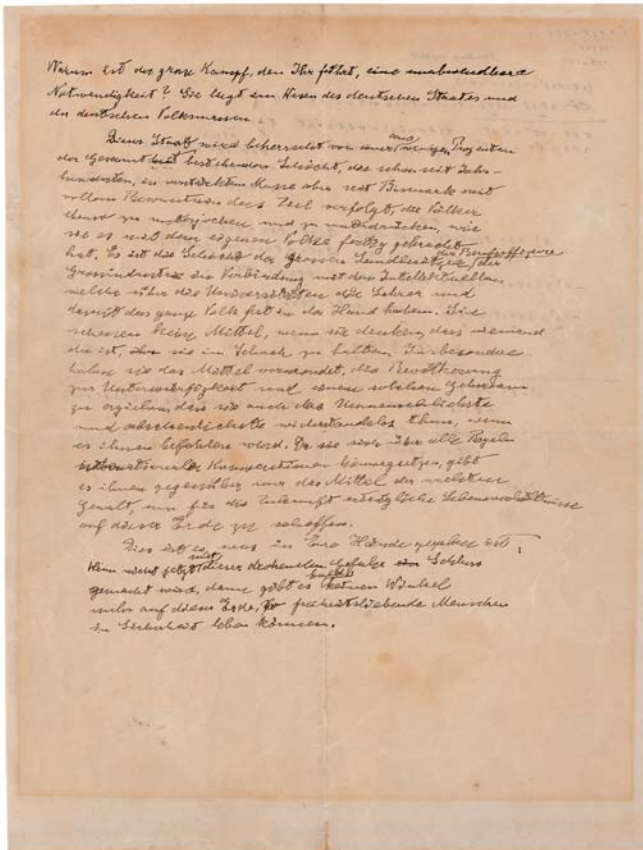 Warum ist der grosse Kampf, den Ihr führt, eine unabwendbare
Notwendigkeit? Sie liegt im Wesen des deutschen Staates und
der deutschen Volksmassen.
Dieser Staat wird beherrscht von einer aus wenigen Prozenten
der Gesamtheit bestehenden Schicht, die schon seit Jahr-
hunderten, in verstärktem Masse aber seit Bismark mit
vollem Bewusstsein das Ziel verfolgt, die Völker
ebenso zu unterjochen und zu unterdrücken, wie
sie es mit dem eigenen Volke fertig gebracht
hat. Es ist die Schicht der grossen Landbesitzer, der Berufsoffiziere der
Grossindustrie in Verbindung mit den Intellektuellen,
welche über die Universitäten die Lehrer und
damit das ganze Volk fest in der Hand haben. Sie
scheuen kein Mittel, wenn sie denken, dass niemand
da ist, der sie im Schach zu halten. Insbesondere
haben sie das Mittel verwendet, die Bevölkerung
zur Unterwürfigkeit und einem solchen Gehorsam
zu erziehen, dass sie auch das Unmenschlichste
und Abscheulichste widerstandslos thun, wenn
es ihnen befohlen wird. Da sie sich über alle Regeln
internationaler Konventionen hinwegsetzen, gibt
es ihnen gegenüber nur das Mittel der
Gewalt, um für die Zukunft erträgliche Lebensverhältnisse
auf dieser Erde zu schaffen.
Dies ist es, was in Eure Hände gegeben ist.
Wenn nicht jetzt mit dieser drohenden Gefahr Schluss
gemacht wird, dann gibt es bald keinen Winkel
mehr auf dieser Erde, wo freiheitsliebende Menschen
in Sicherheit leben können.